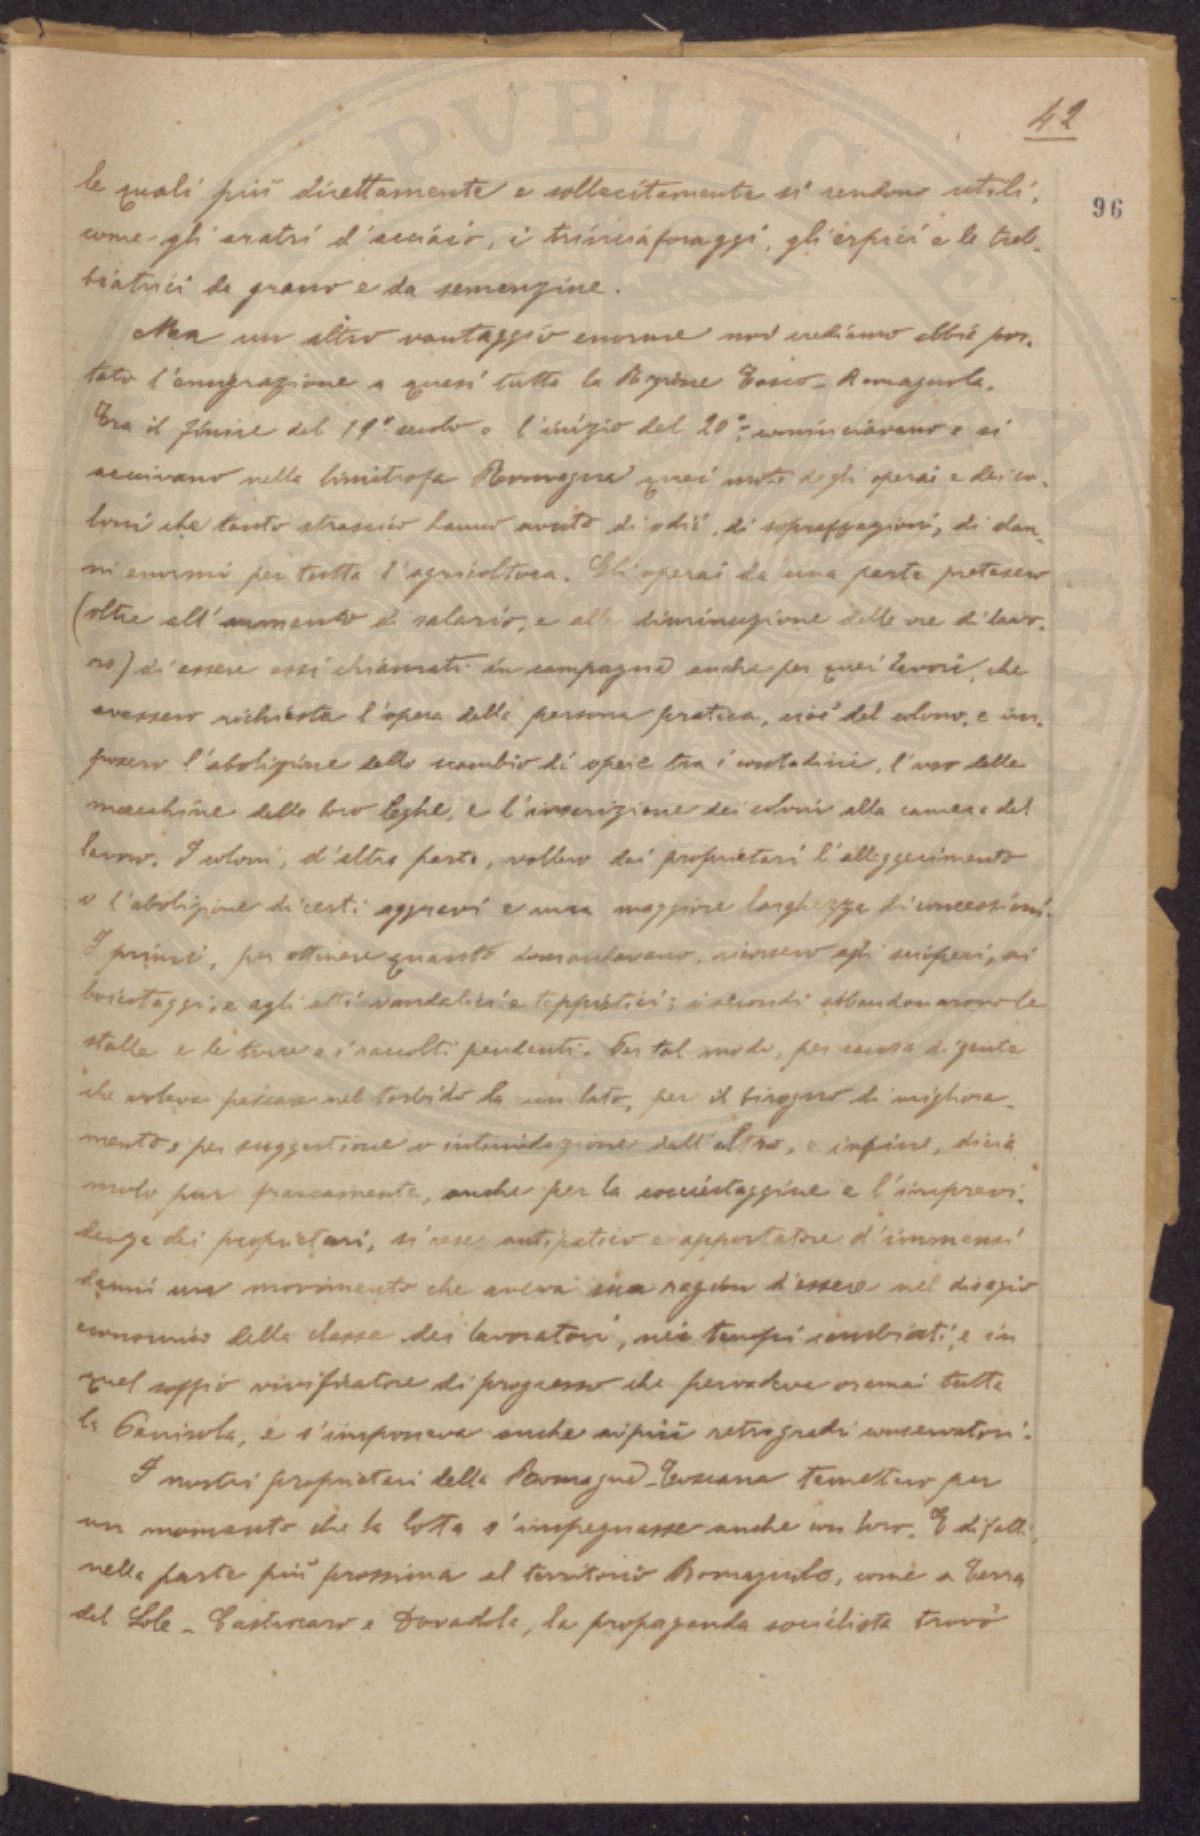 42
96
le quali più direttamente e sollecitamente si rendono utili,
come gli aratri d'acciaio, i trinciaforaggi, gli erpici e le treb-
biatrici da grano e da semenzine.
Ma un altro vantaggio enorme noi crediamo abbia por-
tato l'emigrazione a quasi tutta la Regione Tosco-Romagnola.
Tra il finire del 19° secolo e l'inizio del 20° cominciavano e si
acuivano nella limitrofa Romagna quei moti degli operai e dei co-
loni che tanto strascico hanno avuto di odii, di sopraffazioni, di dan-
ni enormi per tutta l'agricoltura. Gli operai da una parte pretesero
(oltre all'aumento di salario, e alla diminuzione delle ore di lavo-
ro) di essere essi chiamati in campagna anche per quei lavori, che
avessero richiesta l'opera della persona pratica, cioè del colono, e im-
posero l'abolizione dello scambio di opere tra i contadini, l'uso delle
macchine delle loro leghe, e l'inscrizione dei coloni alla camera del
lavoro. I coloni, d'altra parte, vollero dai proprietari l'alleggerimento
o l'abolizione di certi aggravi e una maggiore larghezza di concessioni.
I primi, per ottenere quanto domandavano, ricorsero agli scioperi, ai
boicotaggi, e agli atti vandalici e teppistici; i secondi abbandonarono le
stalle e le terre e i raccolti pendenti. Per tal modo, per causa di gente
che voleva pescare nel torbido da un lato, per il bisogno di migliora-
mento, per suggestione o intimidazione dall'altro, e infine, dicia
molo pur francamente, anche per la cocciutaggine e l'imprevi-
denza dei proprietari, si rese antipatico e apportatore d'immensi
danni un movimento che aveva sua ragion d'essere nel disagio
economico della classe dei lavoratori, nei tempi cambiati, e in
quel soffio vivificatore di progresso che pervadeva oramai tutta
la Penisola, e s'imponeva anche ai più retrogradi conservatori.
I nostri proprietari della Romagna-Toscana temettero per
un momento che la lotta s'impegnasse anche con loro. E difatti,
nella parte più prossima al territorio Romagnolo, come a Terra
del Sole - Castrocaro e Dovadola, la propaganda socialista trovò